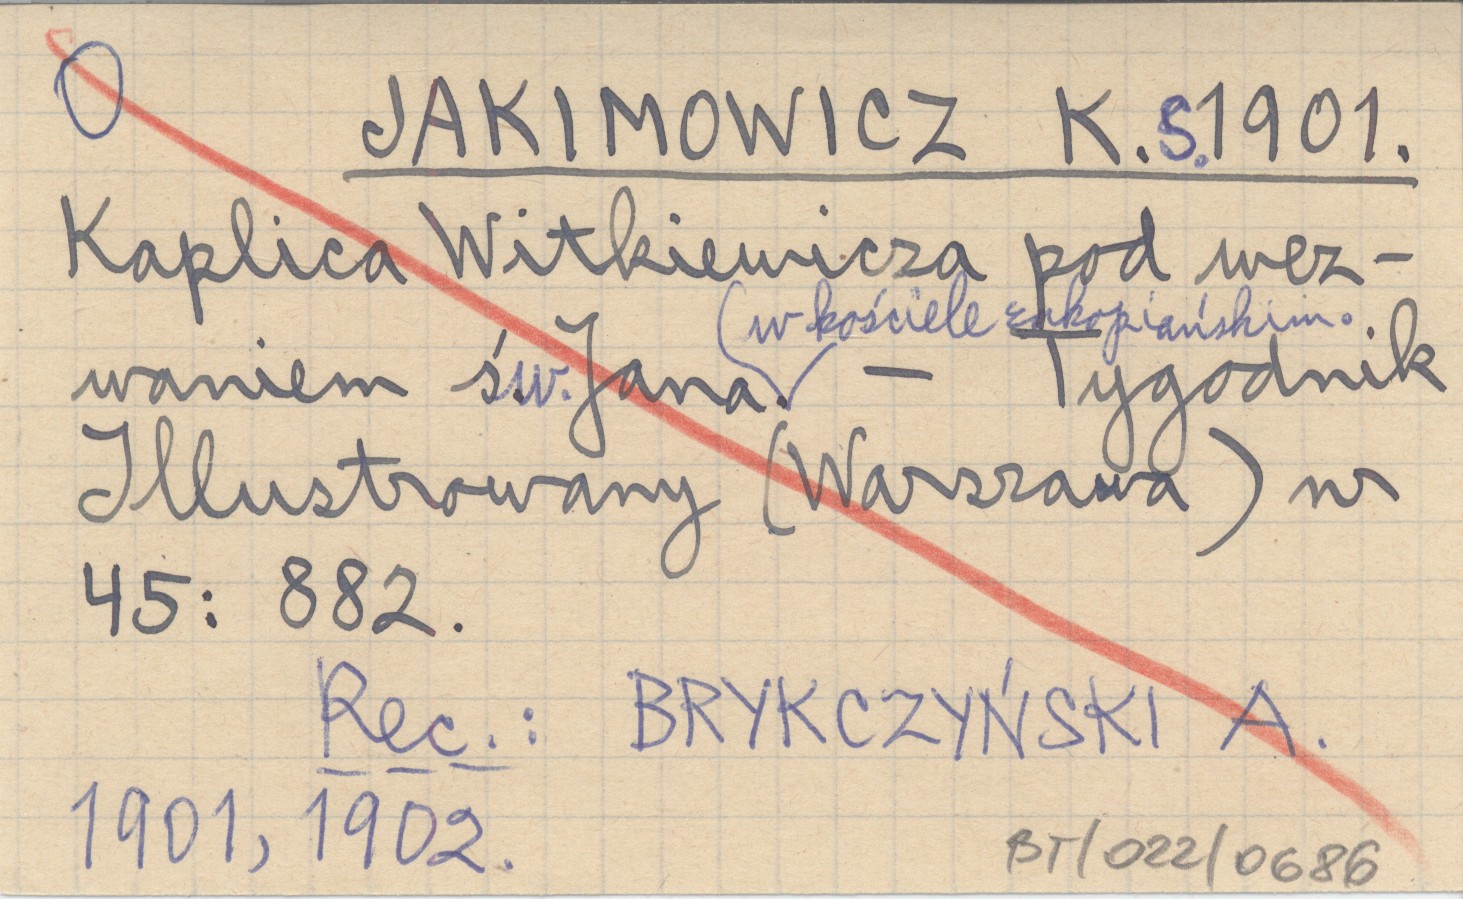 JAKIMOWICZ K.S.1901.
Kaplica Witkiewicza pod wez-
(w kościele zakopiańskim.
waniem św. Jana. — Tygodnik
Illustrowany (Warszawa) nr
45: 882.
Rec.: BRYKCZYŃSKI A.
1901, 1902.
BT/022/0686